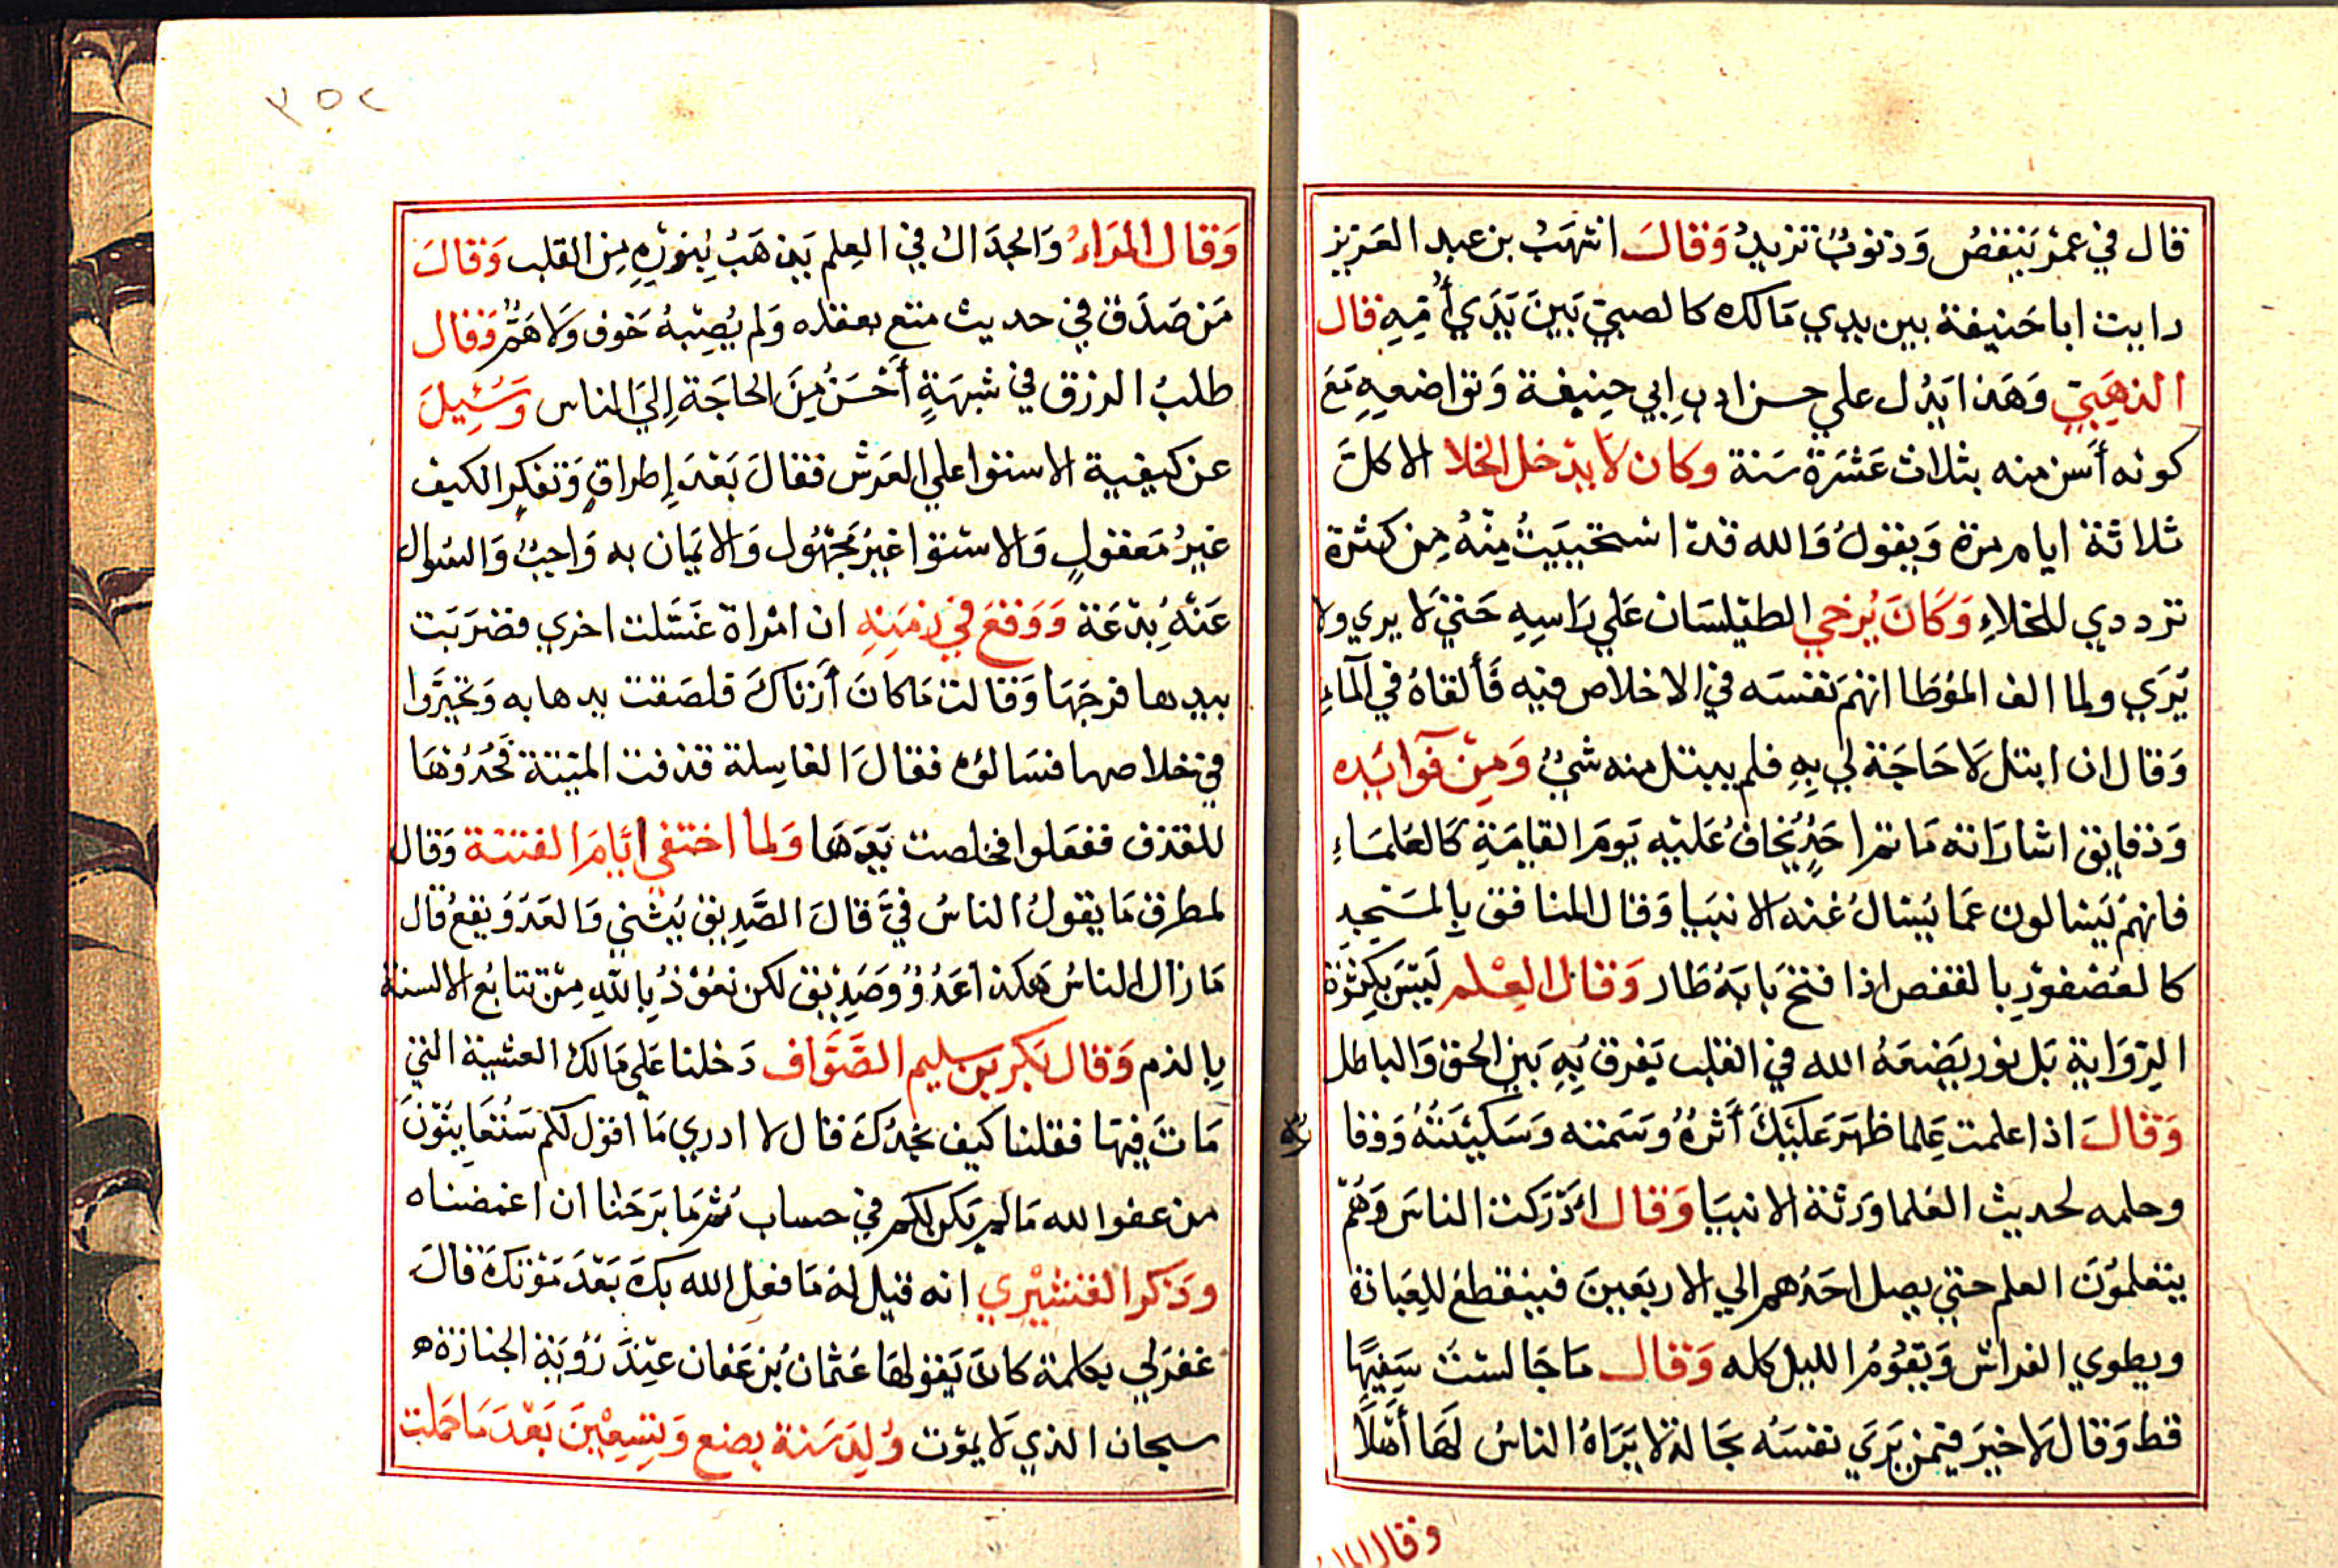 قال في عمر ينقص وذنوب تزيد وقال اشهب بن عبد العزيز
رايت ابا حنيفة بين يدي مالك كالصبي بين يدي أمه قال
الذهبي وهذا يدل علي حسن ادب ابي حنيفة وتواضعه مع
كونه أسن منه بثلاث عشرة سنة وكان لا يدخل الخلا الا كل
ثلاثة ايام مرة ويقول والله قد استحييت منه من كثرة
ترددي للخلاء وكان يرخي الطيلسان علي راسه حتي لا يري ولا
يري ولما الف الموطا اتهم نفسه في الاخلاص فيه فألقاه في الماء
وقال ان ابتل لا حاجة لي به فلم يبتل منه شئ ومن فوايده
ودقايق اشاراته ما ثم احد يخاف عليه يوم القيامة كالعلماء
فانهم يسالون عما يسال عنه الانبيا وقال المنافق بالمسجد
كالعصفور بالقفص اذا فتح بابه طار وقال العلم ليس بكثرة
الرواية بل نور يضعه الله في القلب يفرق به بين الحق والباطل
وقال اذا علمت علما ظهر عليك أثره وسمته وسكينته ووقا
ره
وحلمه لحديث العلما ورثة الانبيا وقال ادركت الناس وهم
يتعلمون العلم حتي يصل احدهم الي الاربعين فينقطع للعبادة
ويطوي الفراش ويقوم الليل كله وقال ما جالست سفيها
قط وقال لا خير فيمن يري نفسه بحالة لا يراه الناس لها أهلا
وقال المراء
٣٥٢
وقال المراء والجدال في العلم يذهب بنوره من القلب وقال
من صدق في حديث متع بعقله ولم يصبه خوف ولا هم وقال
طلب الرزق في شبهة أحسن من الحاجة إلي الناس وسئيل
عن كيفية الاستوا علي العرش فقال بعد إطراق وتفكر الكيف
غير معقول والاستوا غير مجهول والايمان به واجب والسوال
عنه بدعة ووقع في زمنه ان امراة غسلت اخري فضربت
بيدها فرجها وقالت ما كان أزناك فلصقت يدها به وتحيروا
في خلاصها فسالوه فقال الغاسلة قذفت الميتة فحدوها
للقذف ففعلوا فخلصت يدها ولما اختفي ايام الفتنة وقال
لمطرف ما يقول الناس في قال الصديق يثني والعدو يقع قال
ما زال الناس هكذا عدو وصديق لكن نعوذ بالله من تتابع الالسنة
بالذم وقال بكر بن سليم الصواف دخلنا علي مالك العشية التي
مات فيها فقلنا كيف نجدك قال لا ادري ما اقول لكم ستعاينون
من عفو الله ما لم يكن لكم في حساب ثم ما برحنا ان اغمضناه
وذكر القشيري انه قيل له ما فعل الله بك بعد موتك قال
غفر لي بكلمة كان يقولها عثمان بن عفان عند رؤية الجنازة
سبحان الذي لا يموت ولد سنة بضع وتسعين بعد ما حملت